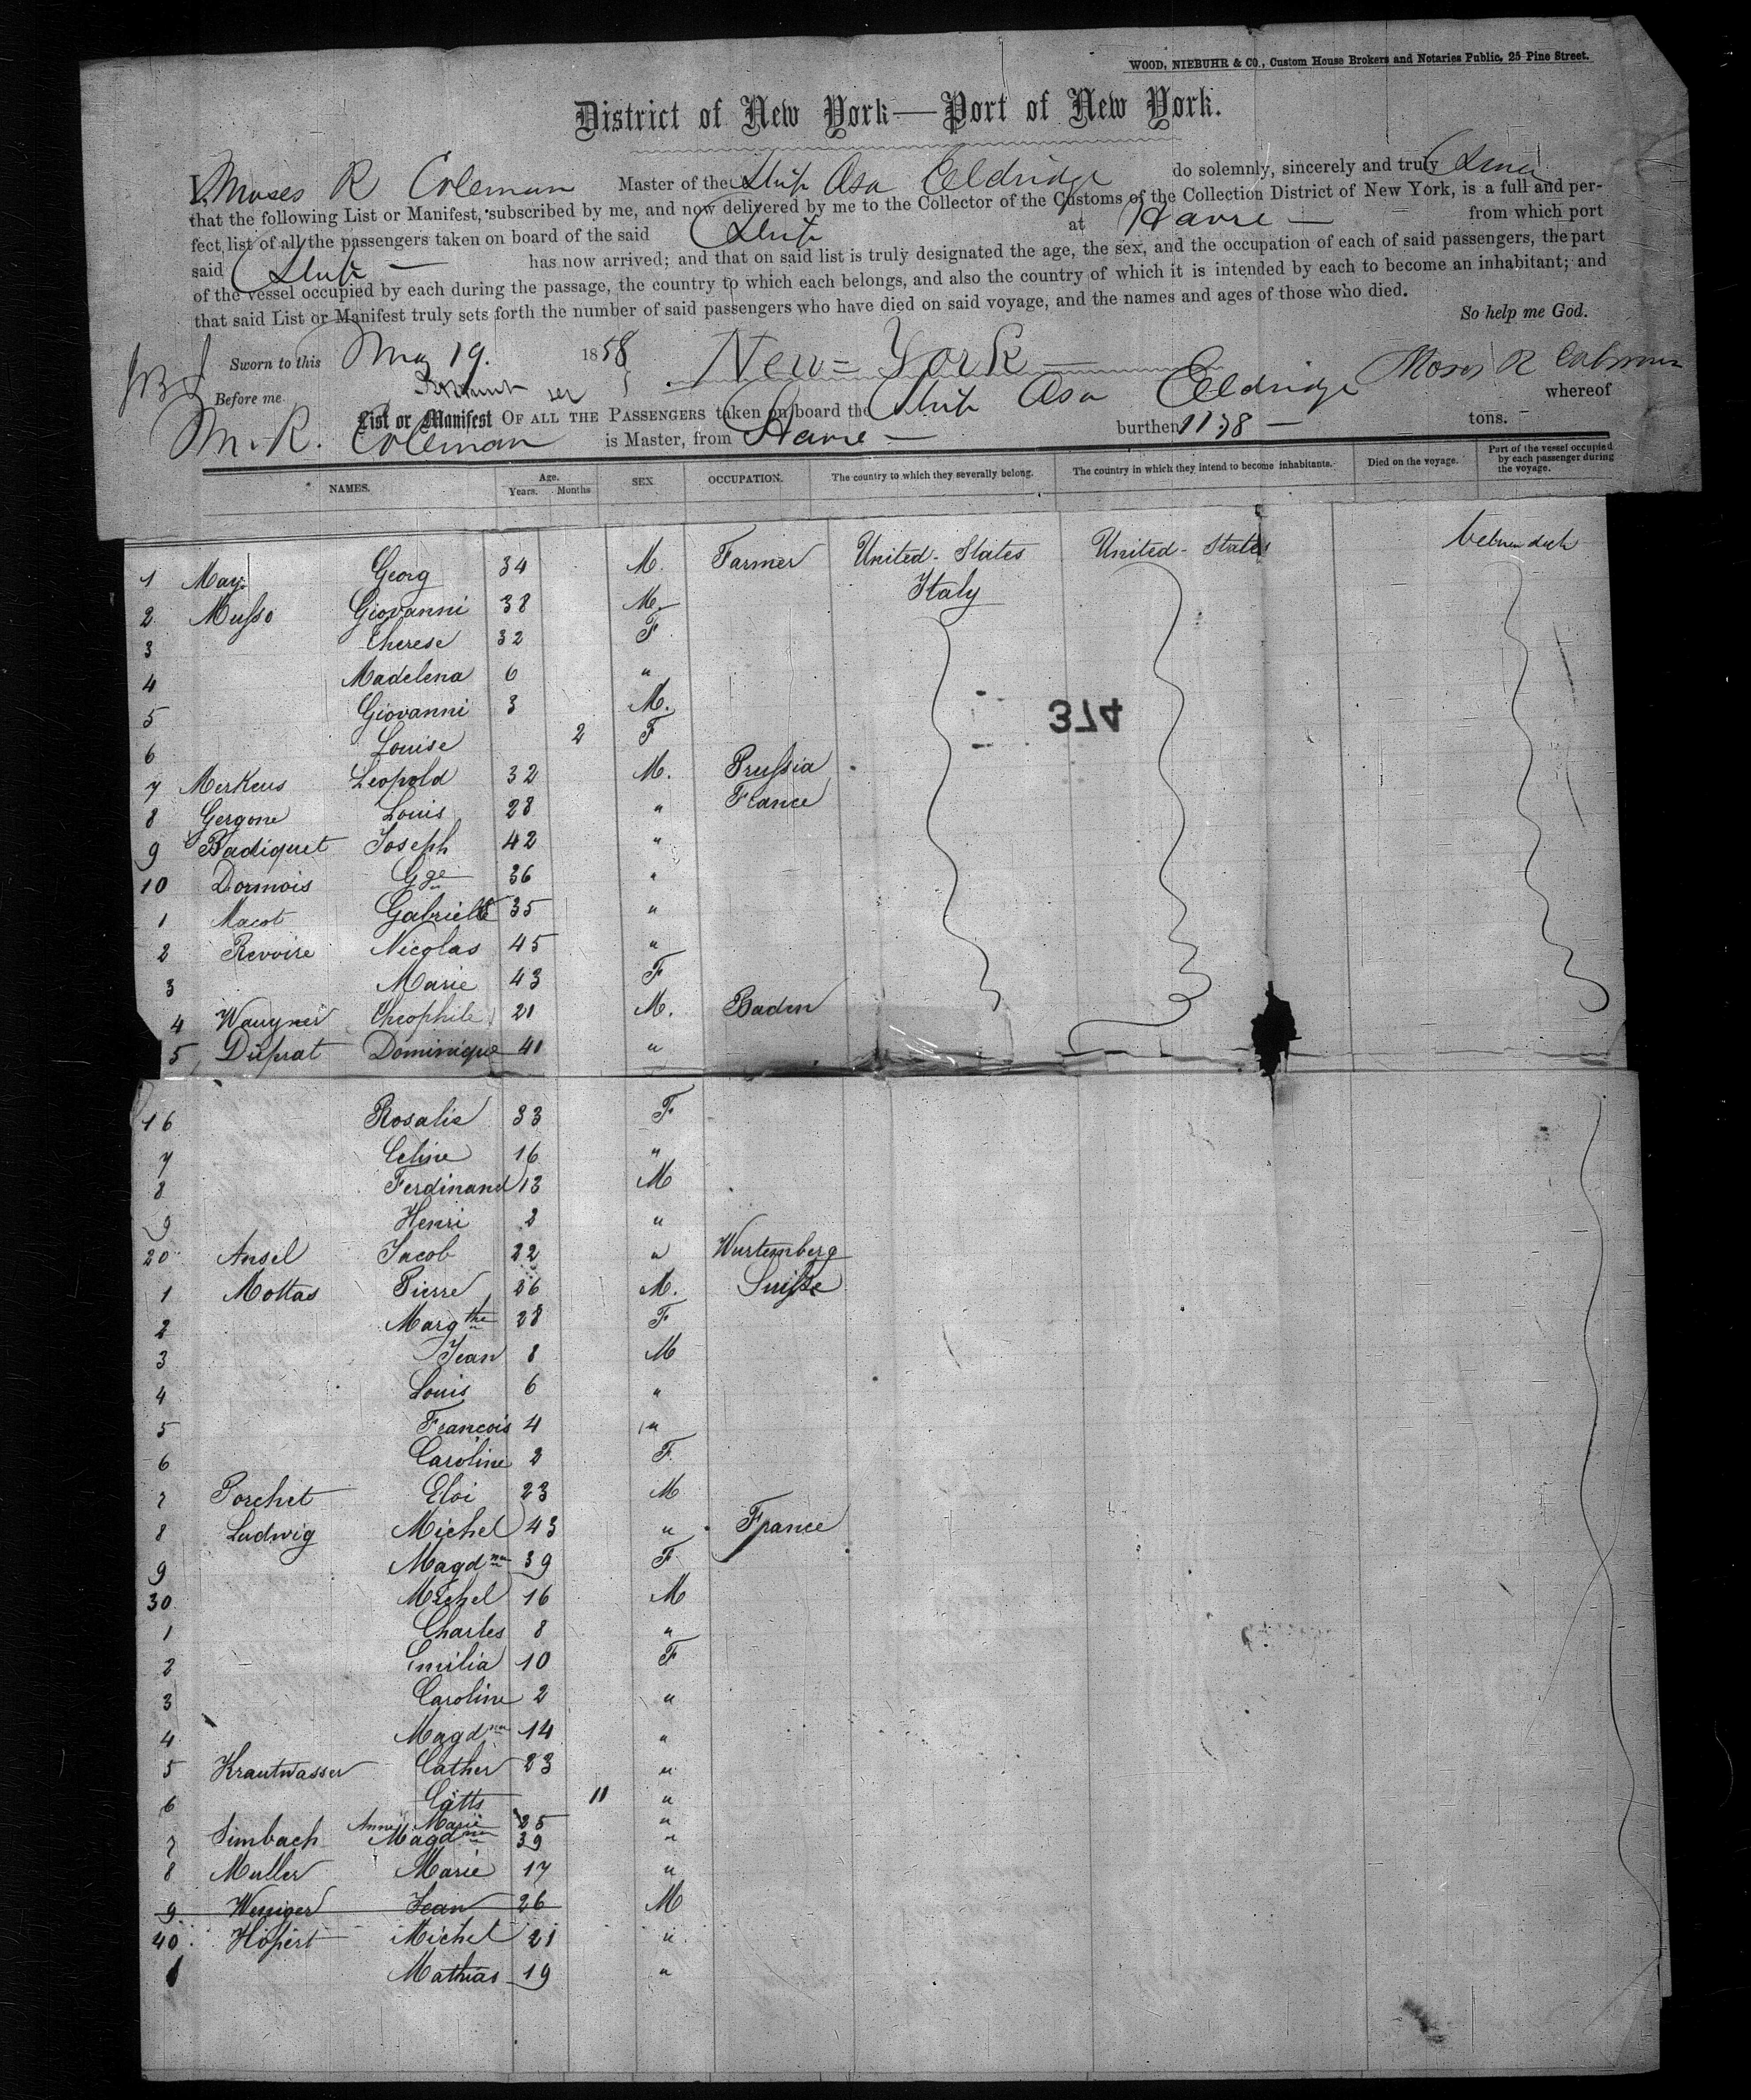 WOOD, NIEBUHR & CO., Custom House Brokers and Notaries Public, 25 Pine Street.
District of New York—Port of New York.
I, Moses R Coleman Master of the Ship Asa Eldridge do solemnly, sincerely and truly
that the following List or Manifest, subscribed by me, and now delivered by me to the Collector of the Customs of the Collection District of New York, is a full and per-
fect list of all the passengers taken on board of the said Ship at Havre — from which port
said Ship — has now arrived; and that on said list is truly designated the age, the sex, and the occupation of each of said passengers, the part
of the vessel occupied by each during the passage, the country to which each belongs, and also the country of which it is intended by each to become an inhabitant; and
that said List or Manifest truly sets forth the number of said passengers who have died on said voyage, and the names and ages of those who died.
So help me God.
Sworn to this May 19. 1858 New=York —
Before me Moses R Coleman
List or Manifest OF ALL THE PASSENGERS taken on board the Ship Asa Eldridge whereof
M. R. Coleman is Master, from Havre — burthen 1138 — tons.
NAMES. Age. Years. Months SEX OCCUPATION. The country to which they severally belong. The country in which they intend to become inhabitants. Died on the voyage. Part of the vessel occupied by each passenger during the voyage.
1 May Georg 34 M. Farmer United-States United-States
2 Musso Giovanni 38 M. Italy
3 Therese 32 F
4 Madelena 6 "
5 Giovanni 3 M.
374
6 Louise 2 F
7 Merkeus Leopold 32 M. Prussia
8 Gergone Louis 28 " France
9 Badiquet Joseph 42 "
10 Dormois Gge 36 "
1 Macot Gabriel 35 "
2 Revoire Nicolas 45 "
3 Marie 43 F
4 Theophile 21 M. Baden
5 Duprat Dominique 41 "
16 Rosalie 33 F
7 Celine 16 "
8 Ferdinand 13 M
9 Henri 2 "
20 Ansel Jacob 22 " Wurtemberg
1 Mottas Pierre 36 M. Suisse
2 Margthe 28 F
3 Jean 8 M
4 Louis 6 "
5 Francois 4 "
6 Caroline 2 F
7 Porchet Eloi 23 M
8 Ludwig Michel 43 " France
9 Magdna 39 F
30 Michel 16 M
1 Charles 8 "
2 Emilia 10 F
3 Caroline 2 "
4 Magdna 14 "
5 Krautwasser Cather 23 "
6 Catts 11 "
Anne Marie 25 "
7 Simbach Magdna 39 "
8 Muller Marie 17 "
9 Jean 26 M
40 Hopert Michel 21 "
1 Mathias 19 "